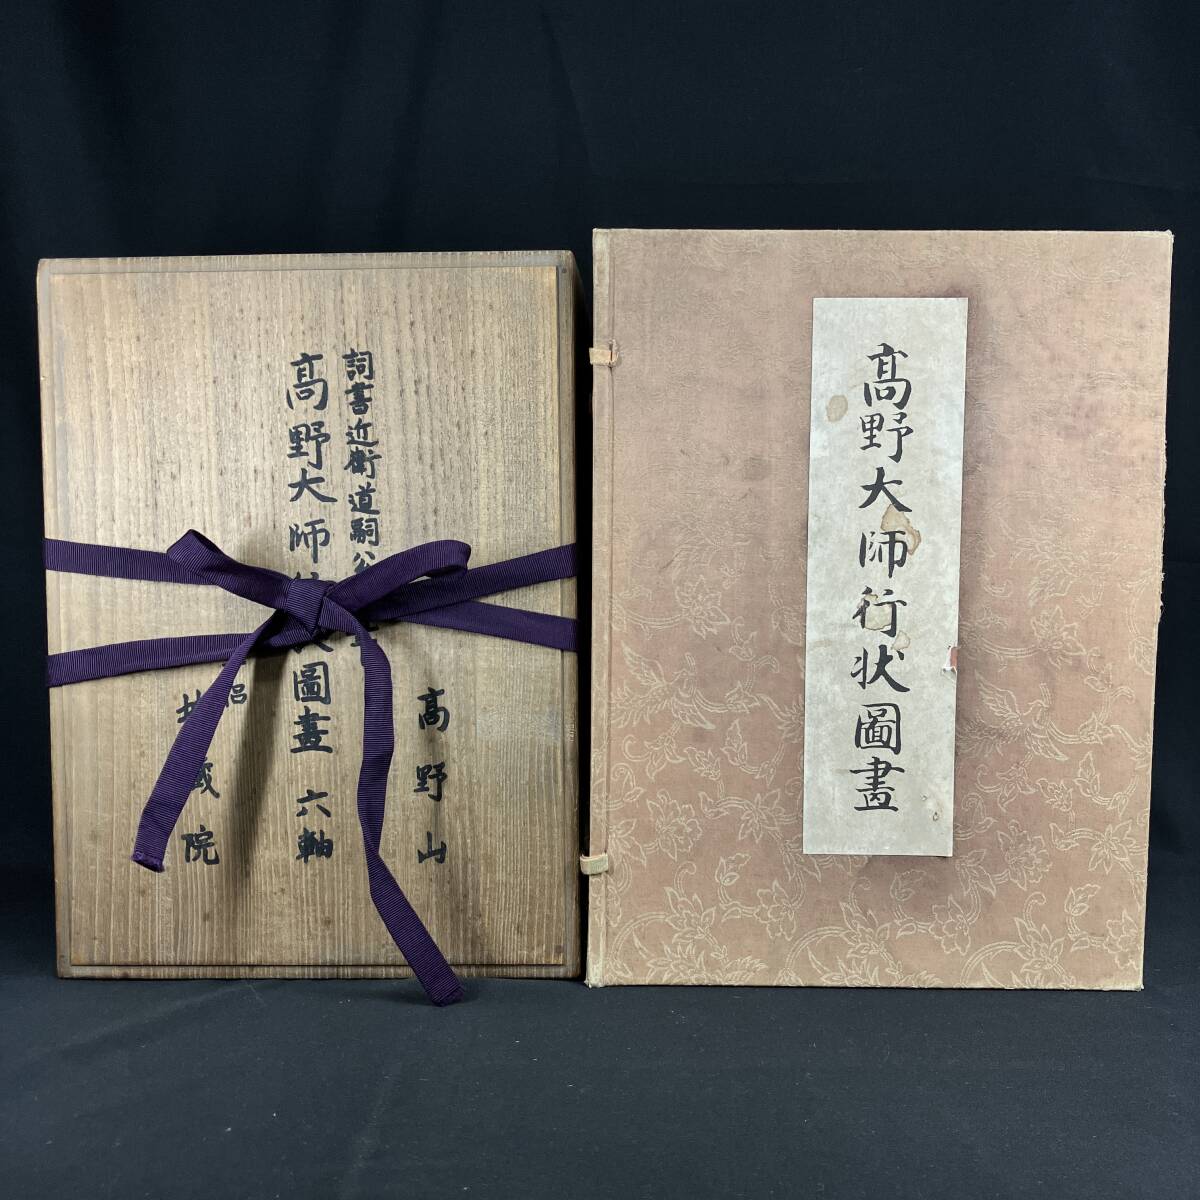 高野山
詞書近衛道嗣公
高野大師 圖畫 六軸
地蔵院
高野大師行状圖畫